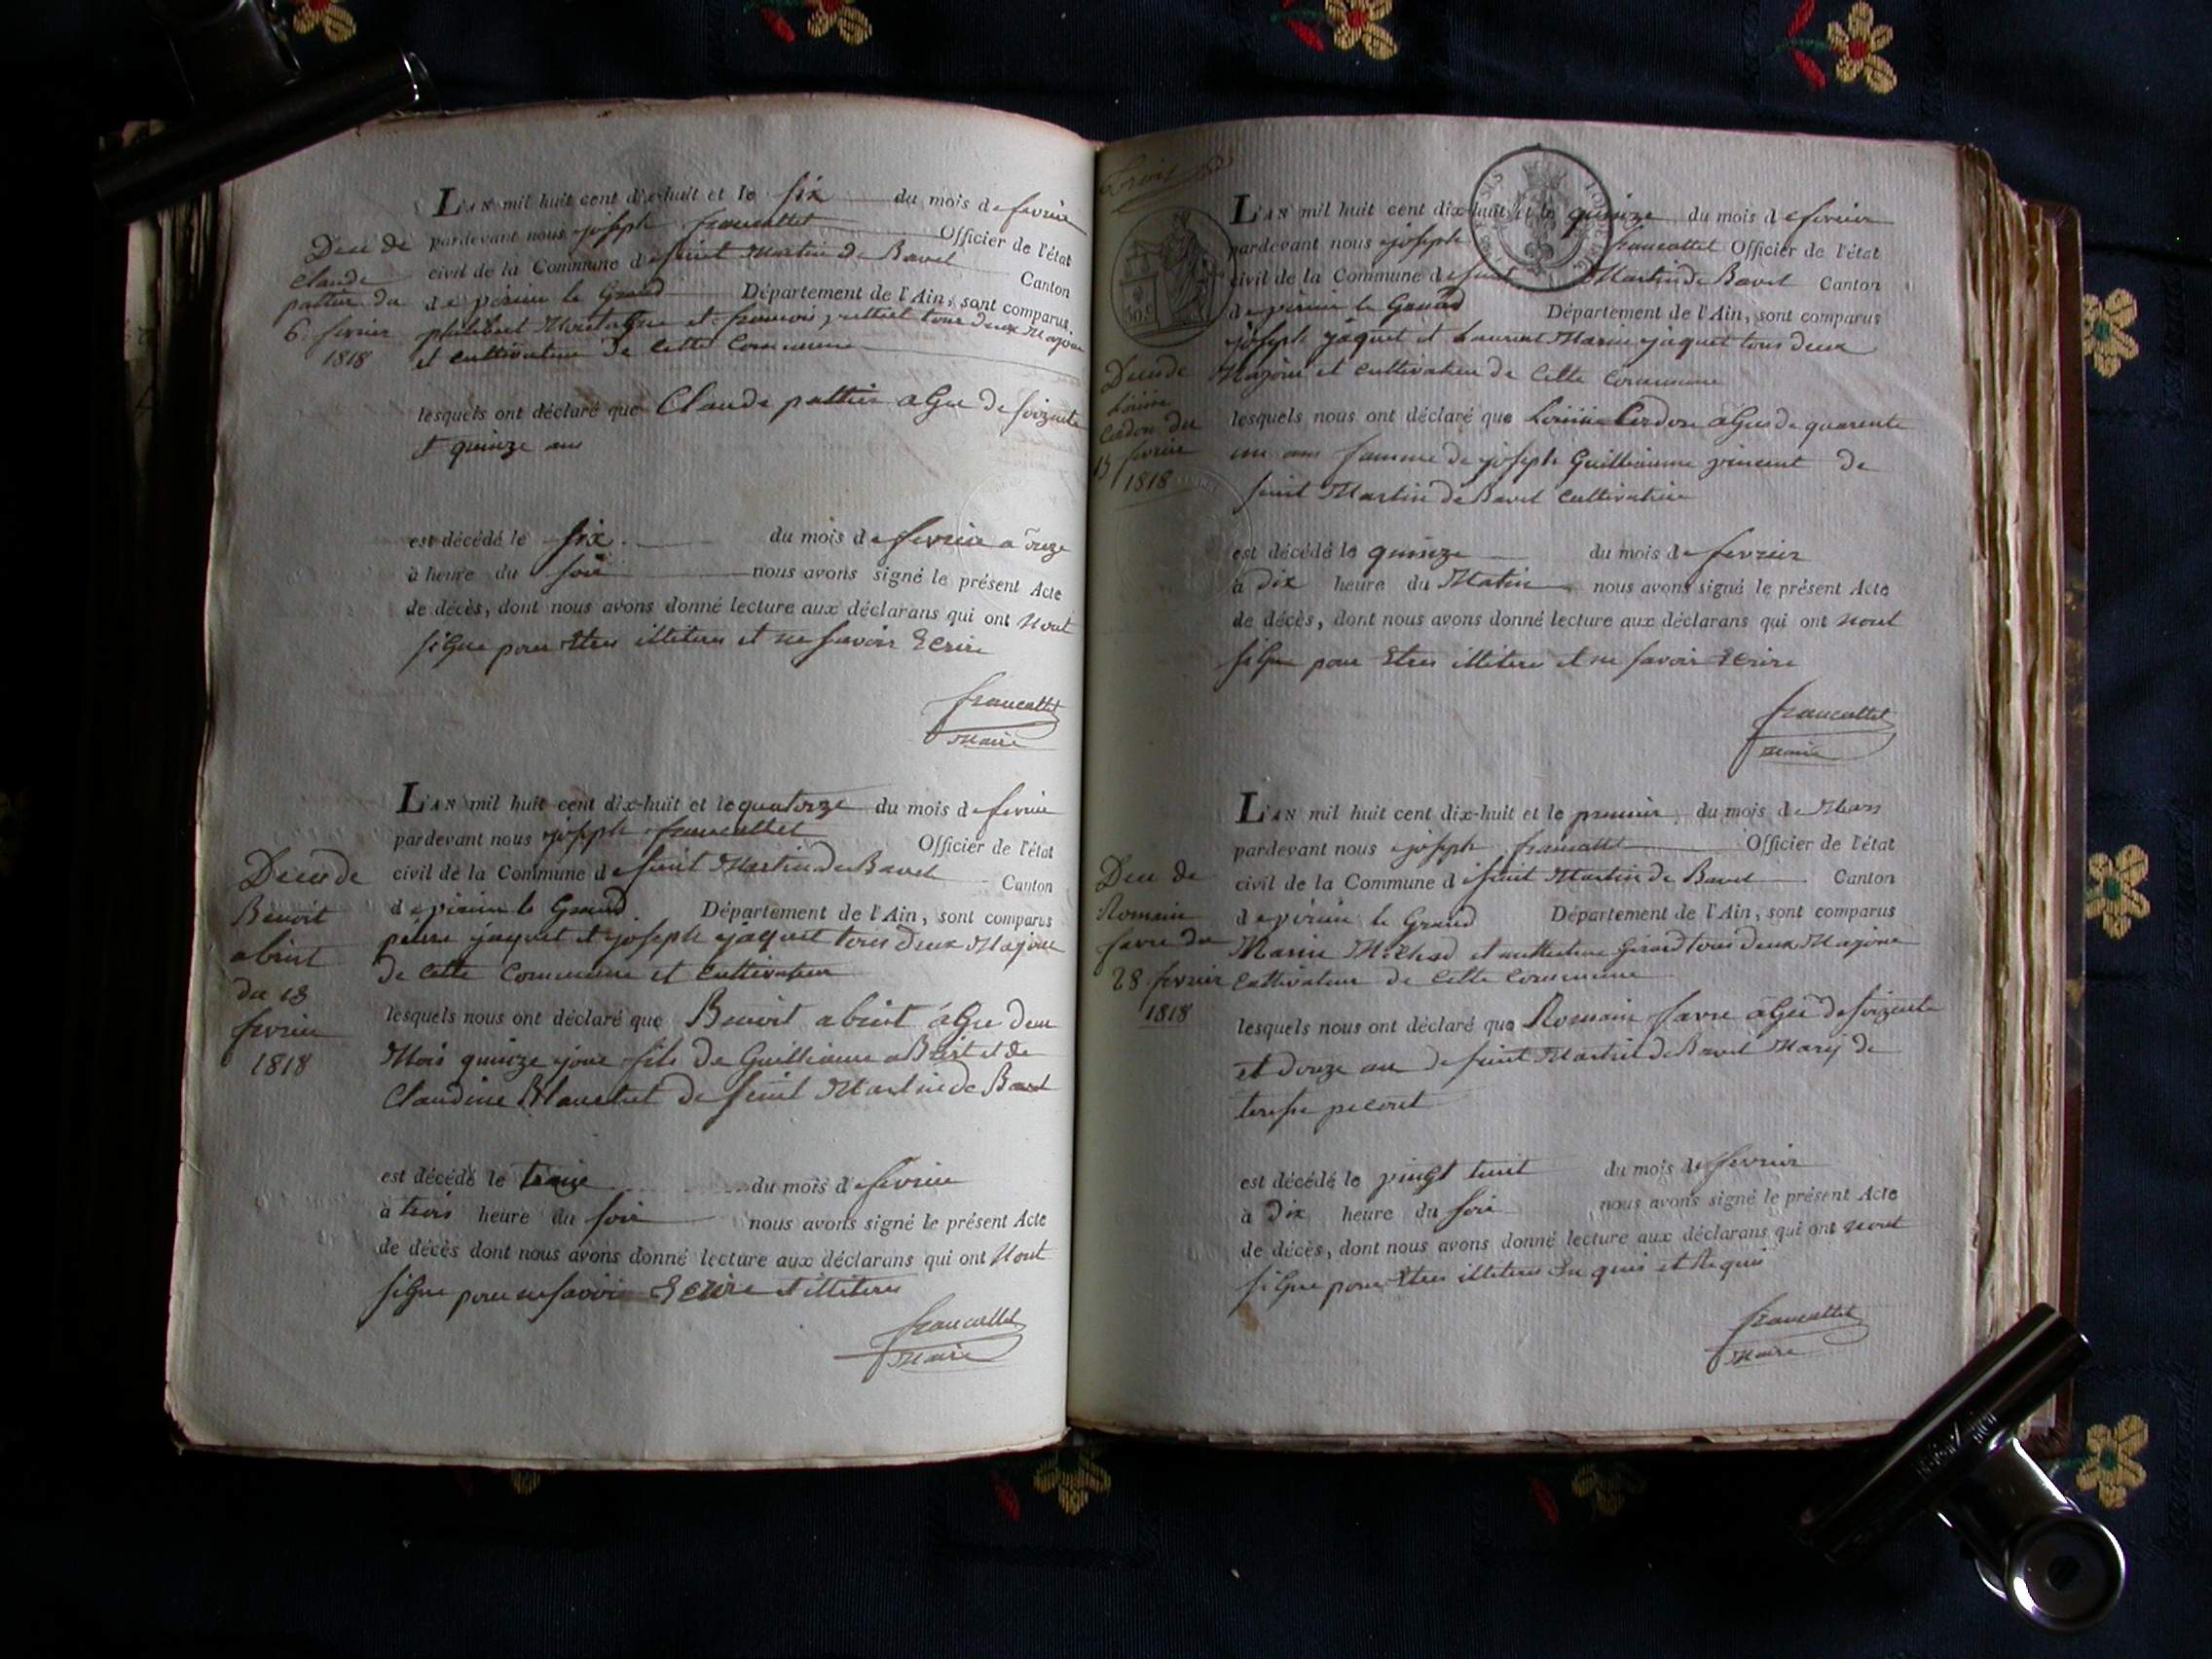 L'AN mil huit cent dix-huit et le six du mois de fevrier
pardevant nous joseph francallet Officier de l'état
civil de la Commune de saint Martin de Bavel Canton
de virieu le Grand Département de l'Ain, sont comparus
philibert Montagne et francois tous deux Majeur
et cultivateur de cette Commune
lesquels ont déclaré que Claude pattier aGee de soizente
et quinze ans
est décédé le six du mois de fevrier a onze
à heure du soir nous avons signé le présent Acte
de décès, dont nous avons donné lecture aux déclarans qui ont nont
siGne pour Etres illiteres et ne savoir Ecrire
francallet
maire
Deces de
Claude
pattier du
6 fevrier
1818
L'AN mil huit cent dix-huit et le quatorze du mois de fevrier
pardevant nous joseph francallet Officier de l'état
civil de la Commune de saint Martin de Bavel Canton
de virieu le Grand Département de l'Ain, sont comparus
pierre jaquet et joseph jaquet tous deux Majeur
de cette Commune et cultivateur
lesquels nous ont déclaré que Benoit abint aGee deux
Mois quinze jour fils de Guilliaume et de
Claudine de saint Martin de Bavel
est décédé le treize du mois de fevrier
à trois heure du soir nous avons signé le présent Acte
de décès dont nous avons donné lecture aux déclarans qui ont nont
siGne pour ne savoir Ecrire et illiteres
francallet
maire
Deces de
Benoit
abint
du 13
fevrier
1818
trois
30.c
L'AN mil huit cent dix-huit et le quinze du mois de fevrier
pardevant nous joseph francallet Officier de l'état
civil de la Commune de saint Martin de Bavel Canton
de virieu le Grand Département de l'Ain, sont comparus
joseph jaquet et Laurent Marin jaquet tous deux
Majeur et cultivateur de cette commune
lesquels nous ont déclaré que Louise Cerdon aGee de quarente
un ans famme de joseph Guilliaume vincent de
saint Martin de Bavel cultivatrice
est décédé le quinze du mois de fevrier
à dix heure du Matin nous avons signé le présent Acte
de décès, dont nous avons donné lecture aux déclarans qui ont nont
siGne pour Etres illiteres et ne savoir Ecrire
francallet
maire
Deces de
Louise
Cerdon du
15 fevrier
1818
L'AN mil huit cent dix-huit et le premier du mois de Mars
pardevant nous joseph francallet Officier de l'état
civil de la Commune de saint Martin de Bavel Canton
de virieu le Grand Département de l'Ain, sont comparus
Marin et Girard tous deux Majeur
Cultivateur de cette commune
lesquels nous ont déclaré que Romain favre aGee de soizente
et douze ans de saint Martin de Bavel Marij de
terese pecout
est décédé le vingt huit du mois de fevrier
à dix heure du soir nous avons signé le présent Acte
de décès, dont nous avons donné lecture aux déclarans qui ont nont
siGne pour Etres illiteres En quis et Requis
francallet
maire
Deces de
Romain
favre du
28 fevrier
1818